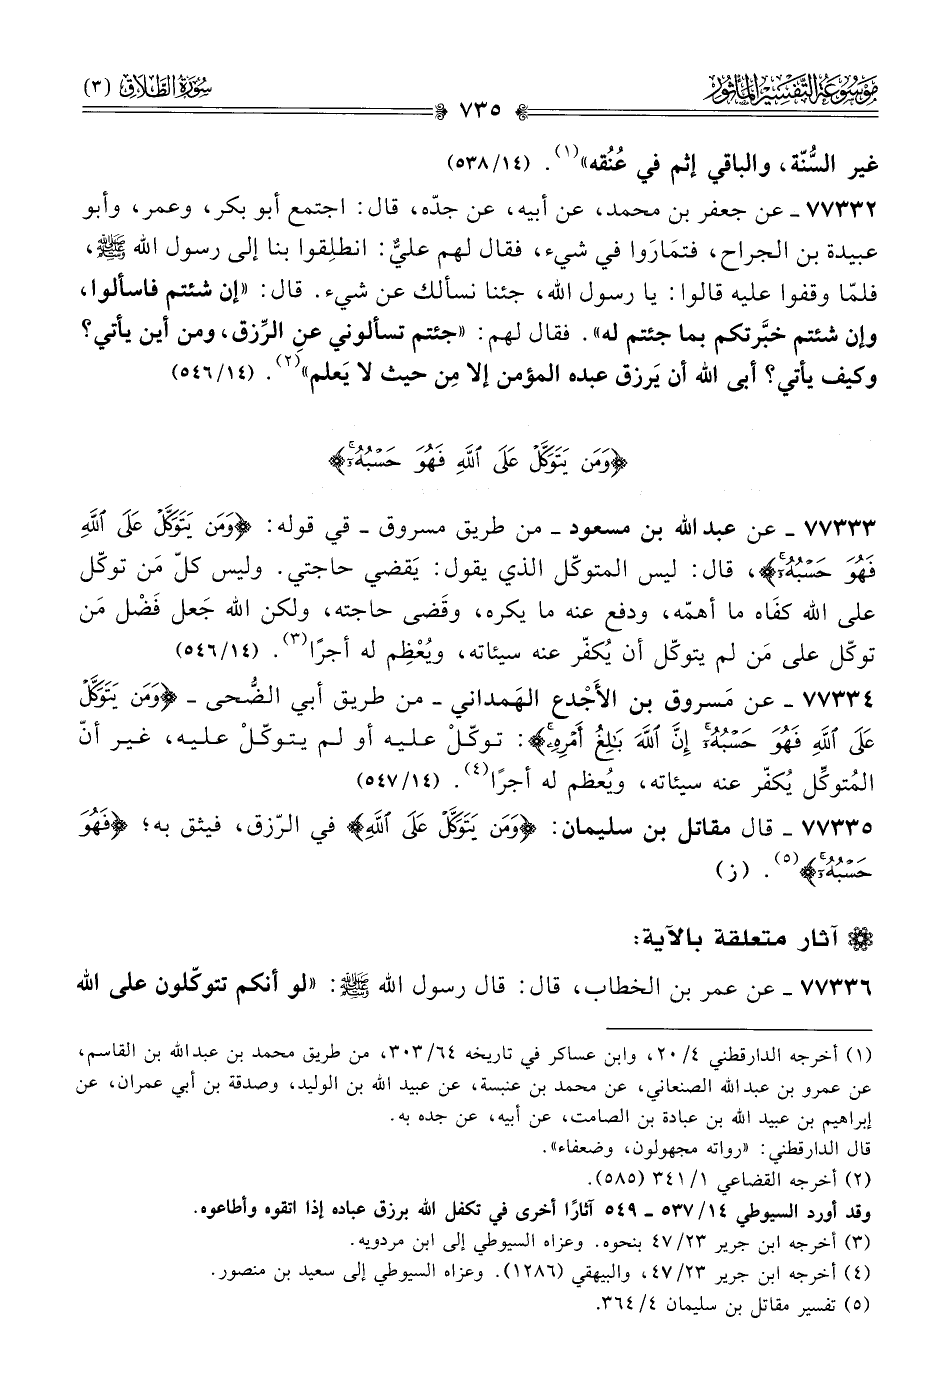 مَوْسُوعَة التَّفْسِير المَأْثُور
سُورَة الطَّلَاق (٣)
٧٣٥
غير السُّنّة، والباقي إثم في عُنُقه»(١). (١٤/ ٥٣٨)
٧٧٣٣٢ ـ عن جعفر بن محمد، عن أبيه، عن جدّه، قال: اجتمع أبو بكر، وعمر، وأبو
عبيدة بن الجراح، فتمارَوا في شيء، فقال لهم عليٌّ: انطلِقوا بنا إلى رسول الله ﷺ،
فلمّا وقفوا عليه قالوا: يا رسول الله، جئنا نسألك عن شيء. قال: «إن شئتم فاسألوا،
وإن شئتم خبَّرتكم بما جئتم له». فقال لهم: «جئتم تسألوني عنِ الرِّزق، ومن أين يأتي؟
وكيف يأتي؟ أبى الله أن يَرزق عبده المؤمن إلا مِن حيث لا يَعلم»(٢). (١٤/ ٥٤٦)
﴿وَمَن يَتَوَكَّلْ عَلَى ٱللَّهِ فَهُوَ حَسْبُهُۥٓ﴾
٧٧٣٣٣ ـ عن عبد الله بن مسعود ـ من طريق مسروق ـ في قوله: ﴿وَمَن يَتَوَكَّلْ عَلَى ٱللَّهِ
فَهُوَ حَسْبُهُۥٓ﴾، قال: ليس المتوكّل الذي يقول: يَقضي حاجتي. وليس كلّ مَن توكّل
على الله كفَاه ما أهمّه، ودفع عنه ما يكره، وقَضى حاجته، ولكن الله جَعل فَضْل مَن
توكّل على مَن لم يتوكّل أن يُكفّر عنه سيئاته، ويُعْظِم له أجرًا(٣). (١٤/ ٥٤٦)
٧٧٣٣٤ ـ عن مَسروق بن الأَجْدع الهَمداني ـ من طريق أبي الضُّحى ـ ﴿وَمَن يَتَوَكَّلْ
عَلَى ٱللَّهِ فَهُوَ حَسْبُهُۥٓ إِنَّ ٱللَّهَ بَٰلِغُ أَمْرِهِۦ﴾: توكّلْ عليه أو لم يتوكّلْ عليه، غير أنّ
المُتوكِّل يُكفّر عنه سيئاته، ويُعظم له أجرًا(٤). (١٤/ ٥٤٧)
٧٧٣٣٥ ـ قال مقاتل بن سليمان: ﴿وَمَن يَتَوَكَّلْ عَلَى ٱللَّهِ﴾ في الرّزق، فيثق به؛ ﴿فَهُوَ
حَسْبُهُۥٓ﴾(٥). (ز)
آثار متعلقة بالآية:
٧٧٣٣٦ ـ عن عمر بن الخطاب، قال: قال رسول الله ﷺ: «لو أنكم تتوكّلون على الله
(١) أخرجه الدارقطني ٤/ ٢٠، وابن عساكر في تاريخه ٦٤/ ٣٠٣، من طريق محمد بن عبدالله بن القاسم،
عن عمرو بن عبدالله الصنعاني، عن محمد بن عنبسة، عن عبيد الله بن الوليد، وصدقة بن أبي عمران، عن
إبراهيم بن عبيد الله بن عبادة بن الصامت، عن أبيه، عن جده به.
قال الدارقطني: «رواته مجهولون، وضعفاء».
(٢) أخرجه القضاعي ١/ ٣٤١ (٥٨٥).
وقد أورد السيوطي ١٤/ ٥٣٧ ـ ٥٤٩ آثارًا أخرى في تكفل الله برزق عباده إذا اتقوه وأطاعوه.
(٣) أخرجه ابن جرير ٢٣/ ٤٧ بنحوه. وعزاه السيوطي إلى ابن مردويه.
(٤) أخرجه ابن جرير ٢٣/ ٤٧، والبيهقي (١٢٨٦). وعزاه السيوطي إلى سعيد بن منصور.
(٥) تفسير مقاتل بن سليمان ٤/ ٣٦٤.